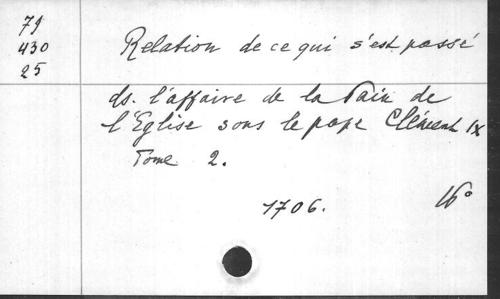 79
430
25
Relation de ce qui s'est passé
ds. l'affaire de la Paix de
l'Eglise sous le pape Clément IX
Tome 2.
1706.
16°